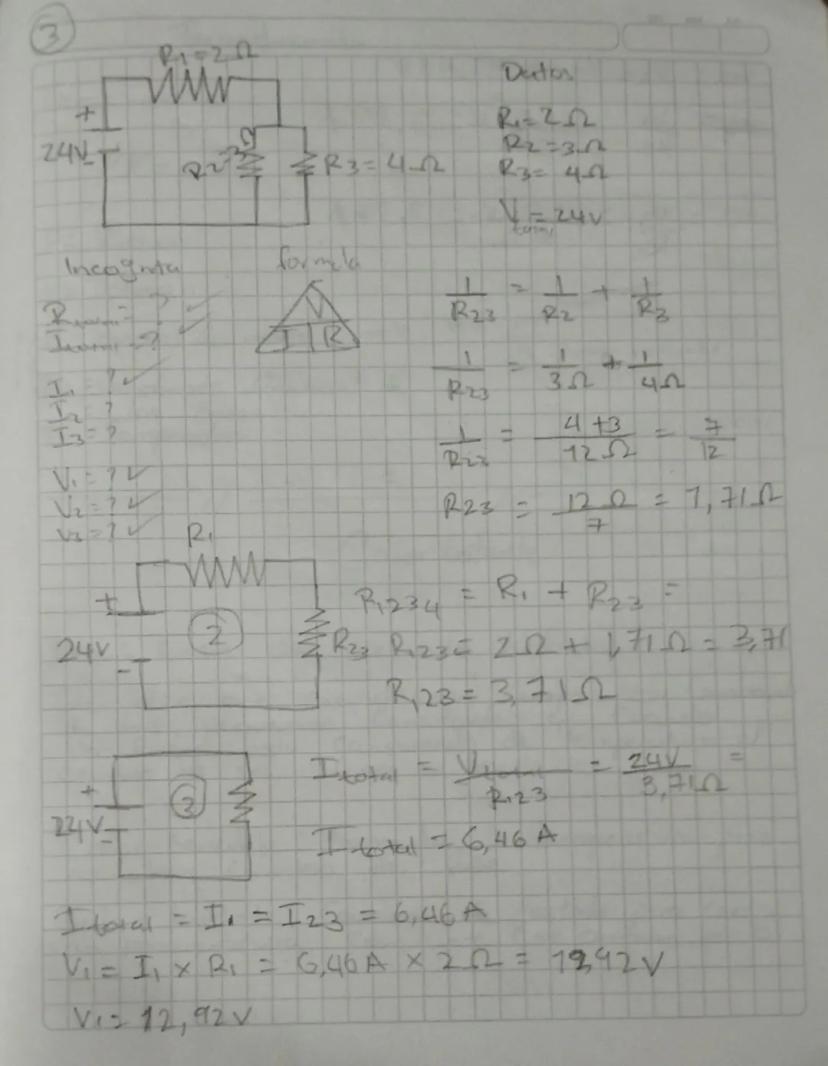 3
R1=2Ω
+
24V
-
R2=3Ω
R3=4Ω
Datos
R1=2Ω
R2=3Ω
R3=4Ω
V total=24v
Incognita
R total=? ✓
I total=? ✓
I1=? ✓
I2=?
I3=?
V1=? ✓
V2=? ✓
V3=? ✓
formula
V
I R
1/R23 = 1/R2 + 1/R3
1/R23 = 1/3Ω + 1/4Ω
1/R23 = 4+3/12Ω = 7/12
R23 = 12Ω/7 = 1,71Ω
R1
+
24V
-
2
R23
R1234 = R1 + R23 =
R123 = 2Ω + 1,71Ω = 3,71
R123 = 3,71Ω
+
24V
-
3
I total = V/R123 = 24V/3,71Ω =
I total = 6,46 A
I total = I1 = I23 = 6,46 A
V1 = I1 x R1 = 6,46A x 2Ω = 12,92V
V1 = 12,92v